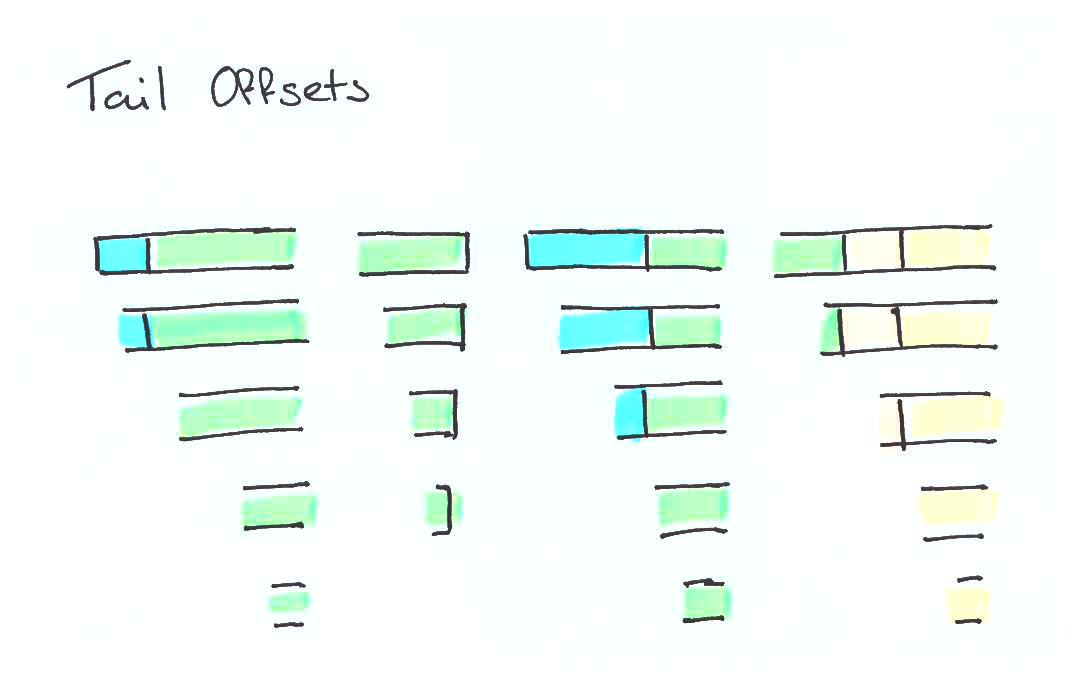 Tail Offsets